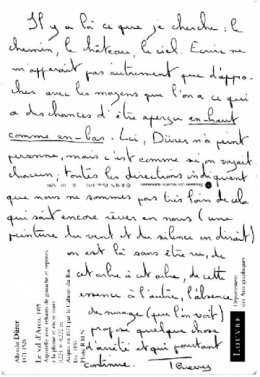 Il y a là ce que je cherche : le
chemin, le château, le ciel. Ecrire ne
m'apparaît pas autrement que d'appro-
cher avec les moyens que l'on a ce qui
a des chances d'être aperçu en-haut
comme en-bas. Ici, Dürer n'a peint
personne, mais c'est comme si on voyait
chacun ; toutes les directions indiquent
que nous ne sommes pas très loin de cela
qui sait encore rêver en nous (une
peinture du vent et du silence on dirait)
on est là sans être vu, de
cet arbre à cet arbre, de cette
essence à l'autre, l'absence
de nuage (que l'on voit)
propose quelque chose
d'arrêté et qui pourtant
continue.
Albrecht Dürer
1471-1528
Le val d'Arco, 1495
Aquarelle avec rehauts de gouache et reprises
à la plume et encre noire
0,223 × 0,222 m
Acquis en 1674 par le Cabinet du Roi
Inv.
Photo R.M.N.
LOUVRE
Département
des Arts graphiques